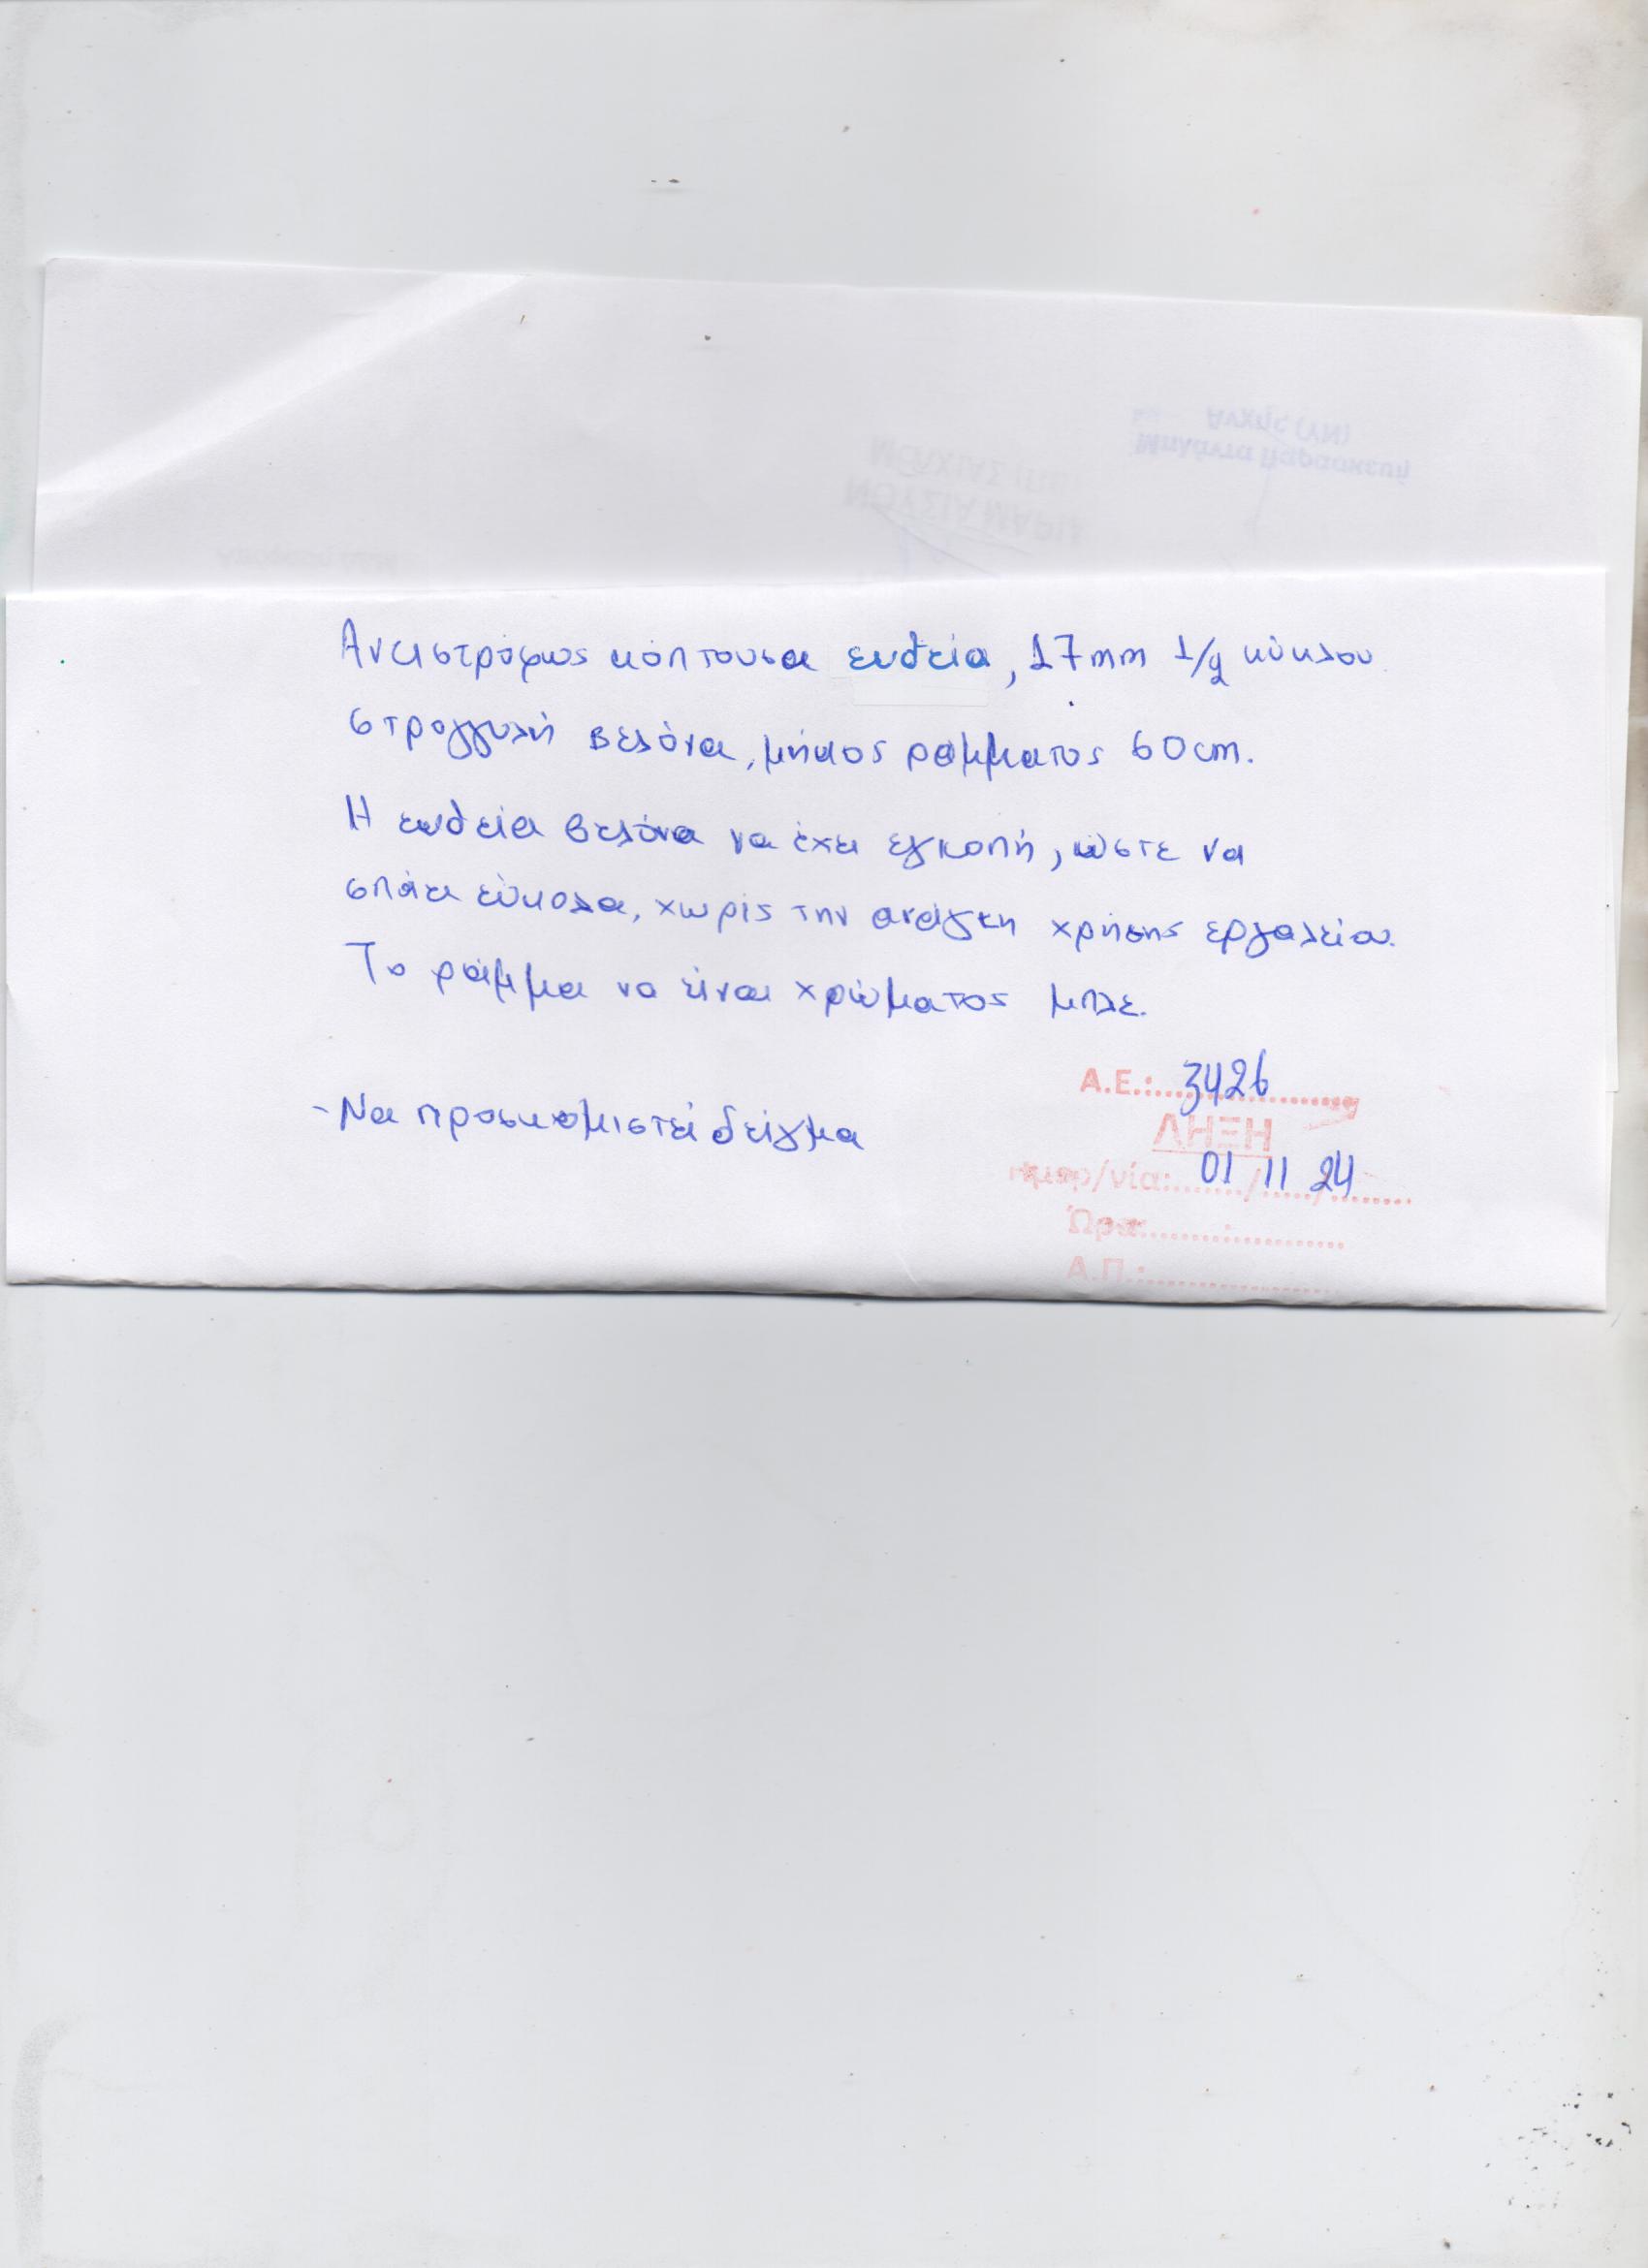 Αντιστρόφως κόπτουσα ευθεία, 17mm 1/2 κύκλου
στρογγυλή βελόνα, μήκος ράμματος 60cm.
Η ευθεία βελόνα να έχει εγκοπή, ώστε να
σπάει εύκολα, χωρίς την ανάγκη χρήσης εργαλείου.
Το ράμμα να είναι χρώματος μπλε.
Α.Ε.: 3426
-Να προσκομιστεί δείγμα
ΛΗΞΗ
ημερ/νία: 01/11/24
Ώρα:
Α.Π.: